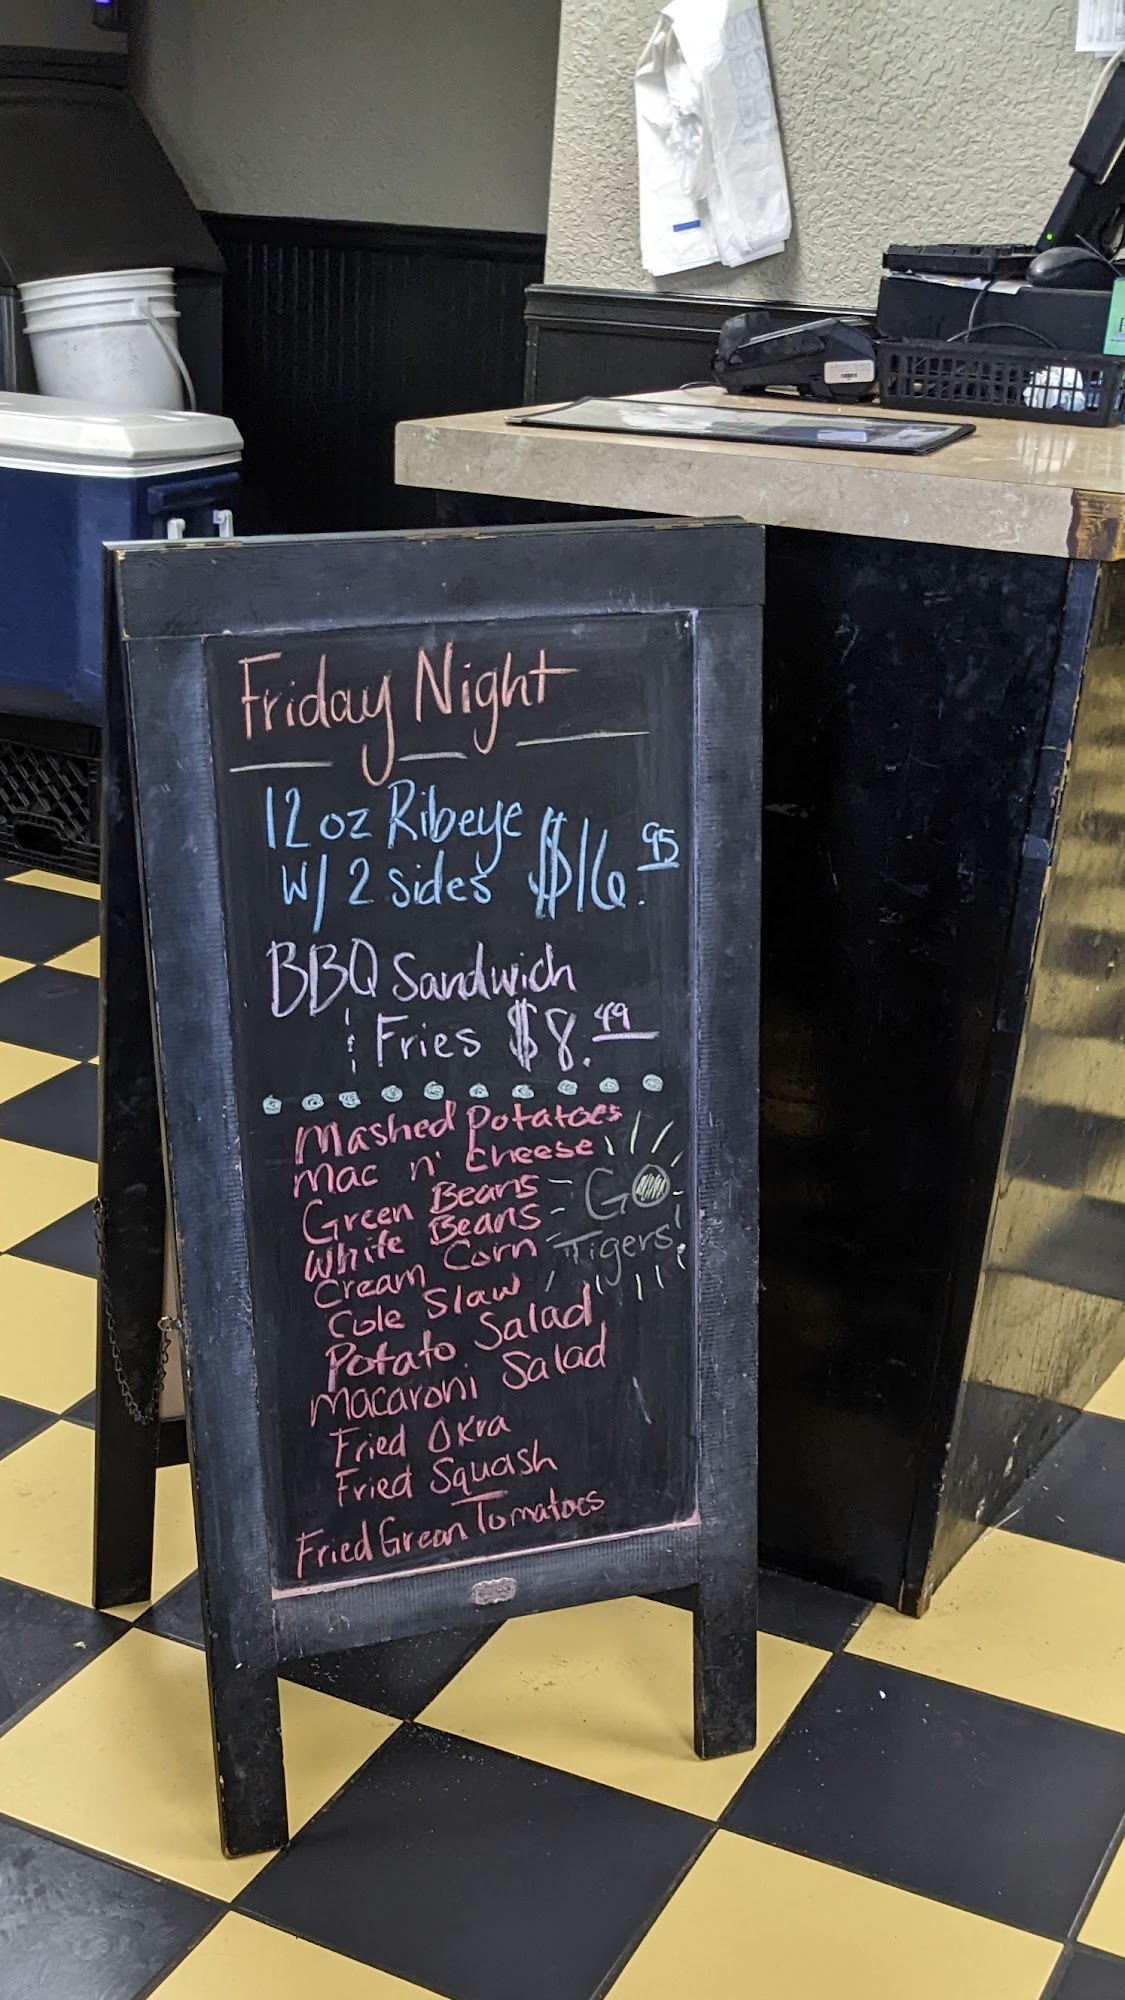 Friday Night
12 oz Ribeye
w/ 2 sides $16.95
BBQ Sandwich
& Fries $8.49
Mashed Potatoes
Mac n' Cheese
Green Beans
White Beans
Cream Corn
Cole Slaw
Potato Salad
Macaroni Salad
Fried Okra
Fried Squash
Fried Green Tomatoes
GO
Tigers!